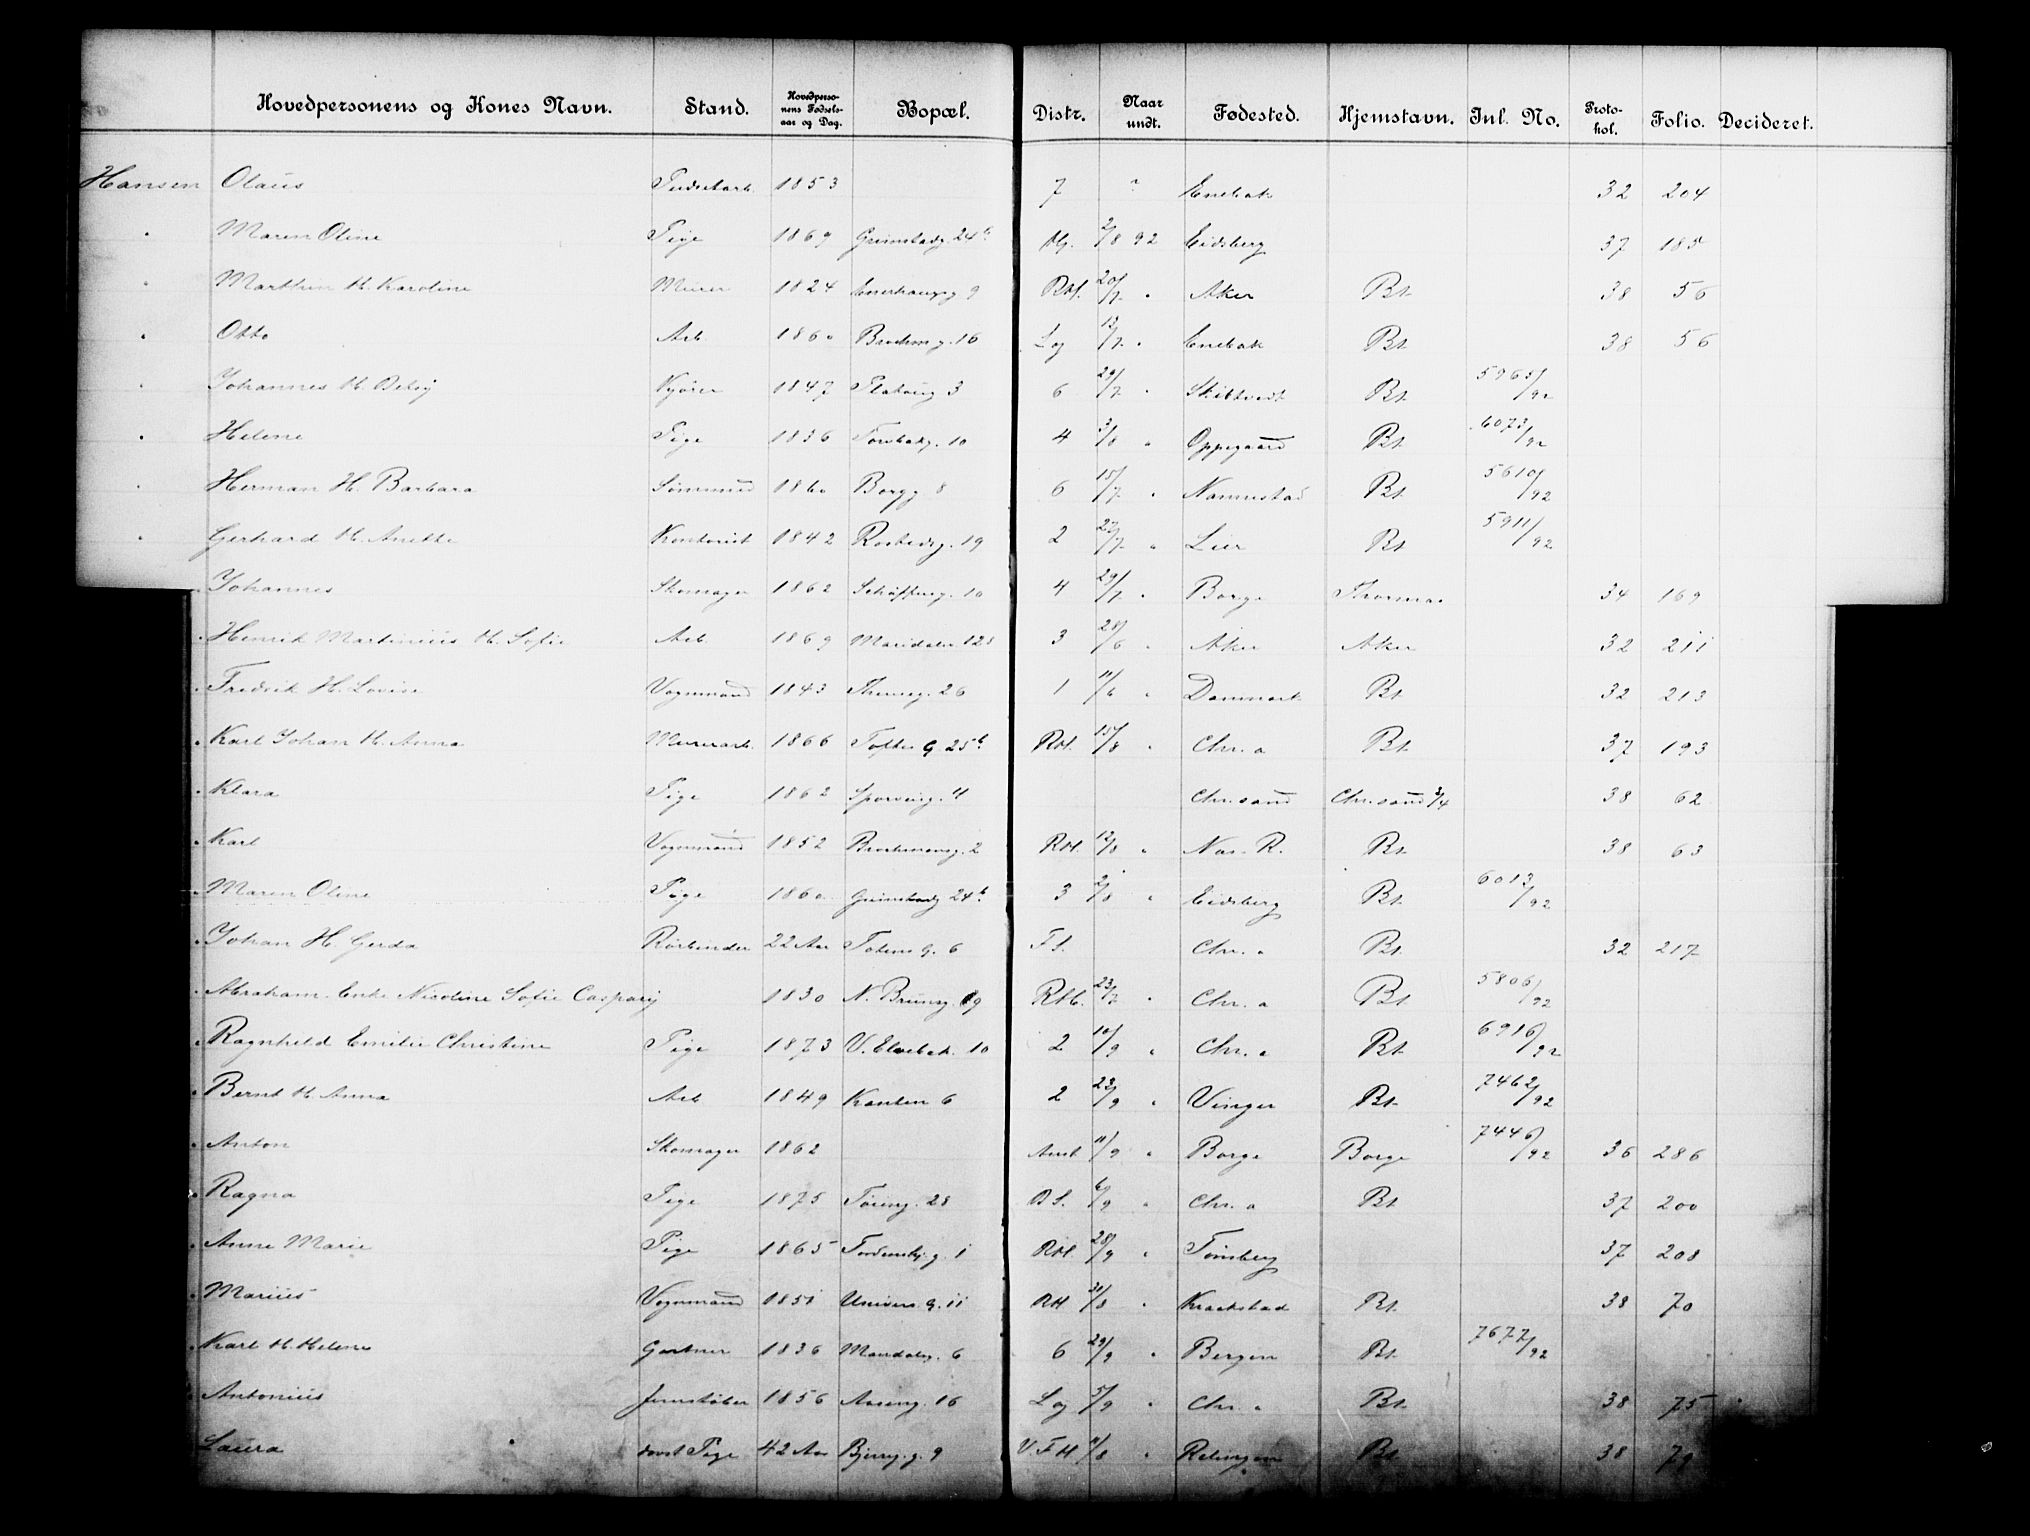 Hovedpersonens og Kones Navn. Stand. Hovedperso-nens Fødsels-aar og Dag. Bopæl. Distr. Naar undt. Fødested. Hjemstavn. Jnl. No. Proto-kol. Folio. Decideret.
Hansen Olaus 1853 7 ? Enebak 32 204
" Maren Oline Pige 1869 Grimstadg. 24 b 2/8 92 Eidsberg 37 185
" Marthin H. Karoline Murer 1824 Enerhaugsg 9 RH. 20/7 " Aker Bt. 38 56
" Otto Arb. 1860 Brochm.g. 16 Lg 12/7 " Enebak Bt. 38 56
" Johannes H. Betsy Kjører 1847 Platoug 3 6 29/7 " Skibtvedt Bt. 5965/92
" Helene Pige 1836 Torvbakg. 10 4 3/8 " Oppegaard Bt. 6073/92
" Herman H. Barbara Sømmed 1860 Borgg 8 6 15/7 " Nannestad Bt. 5610/92
" Gerhard H. Anette Kontorist 1842 Rostedsg. 19 2 27/7 " Lier Bt. 5911/92
" Johannes Skomager 1862 10 4 29/7 " Borge 34 169
" Henrik Martinius H. Sofie Arb. 1869 Maridalsv. 128 3 28/6 " Aker Aker 32 211
" Fredrik H. Lovise Vognmand 1843 Thereseg. 26 1 11/6 " Danmark Bt. 32 213
" Karl Johan H. Anna Murerarb. 1866 Toftes G. 25 b RH. 15/8 " Chr.a Bt. 37 193
" Klara Pige 1862 Sporveisg. 4 Chr.sand Chr.sand 3/4 38 62
" Karl Vognmand 1852 Brochmansg. 2 RH. 12/8 " Næs. R. Bt. 38 63
" Maren Oline Pige 1860 Grimstadg 24 b. 3 2/8 " Eidsberg Bt. 6013/92
" Johan H. Gerda Rørbinder 22 Aar Totens G. 6 F.S. Chr.a Bt. 32 217
" Abraham. Enke Nicoline Sofie Caspary 1830 N. Brunsg. 9 RH. 23/7 " Chr.a Bt 5806/92
" Ragnhild Emilie Christine Pige 1873 V. Elvebak. 10 2 10/9 " Chr.a Bt. 6916/92
" Bernt H. Anna Arb. 1849 Kanten 6 2 23/9 " Vinger Bt. 7462/92
" Anton Skomager 1862 11/9 " Borge Borge 7446/92 36 286
" Ragna Pige 1875 28 6/9 " Chr.a Bt. 37 200
" Anne Marie Pige 1865 Tordenskj.g. 1 RH. 28/9 " Tønsberg 37 208
" Marius Vognmand 1851 Univers G. 11 RH 31/8 " Kraakstad Bt. 38 70
" Karl H. Helene Gartner 1836 Mandalsg. 6 6 29/9 " Bergen Bt. 7677/92
" Antonius Jernstøber 1856 Aaseng. 16 Lg 5/9 " Chr.a Bt. 38 75
Laura Pige 42 Aar Bjerreg.g. 9 V.F.H. 11/8 " Bt 38 79